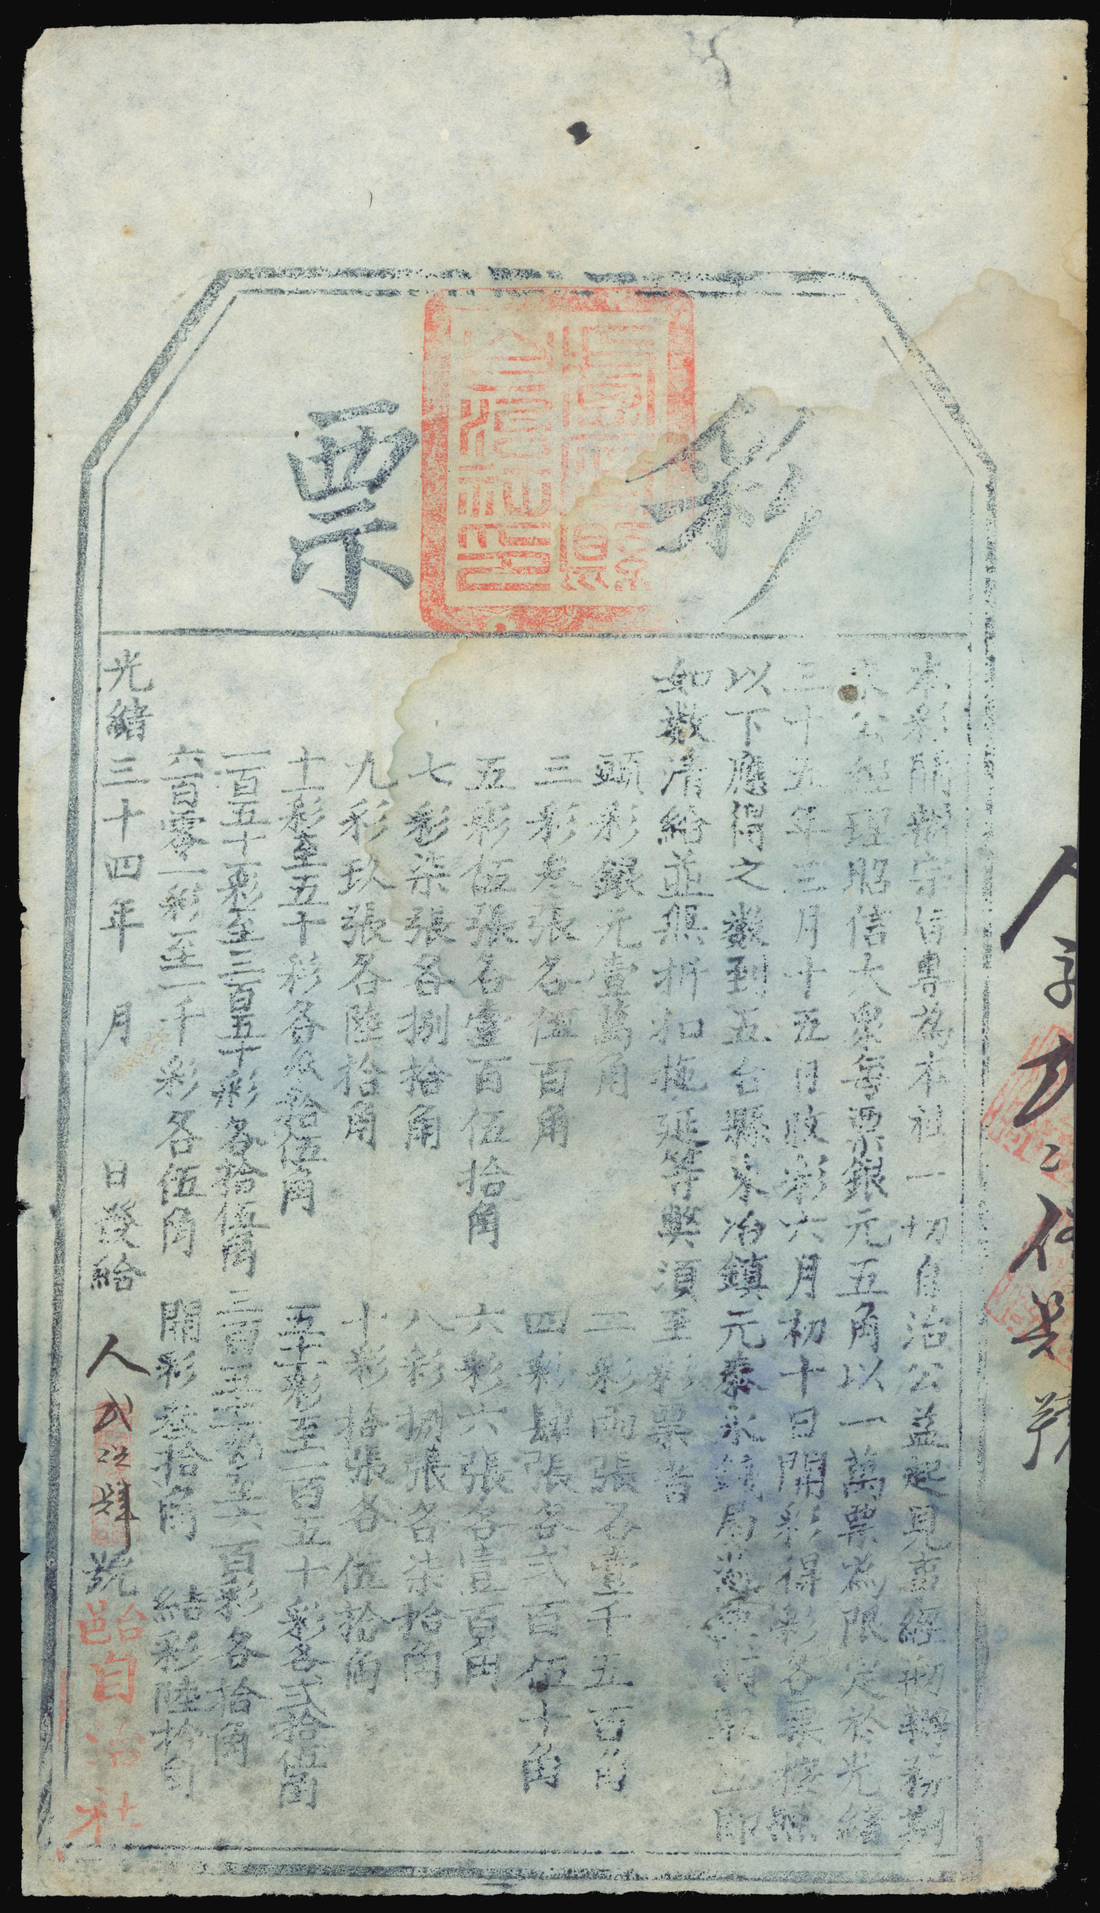 彩票
本彩開辦宗旨專為本社一切自治公益起見事經刱辦務期
大公經理昭信大眾每票銀元五角以一萬票為限定於光緒
三十九年三月十五日收彩六月初十日開彩得彩各票按照
以下應得之數到五台縣東冶鎮元泰永錢局憑票持取立即
如數清給並無折扣拖延等弊須至彩票者
頭彩銀元壹萬角 二彩兩張各壹千五百角
三彩叁張各伍百角 四彩肆張各弍百伍十角
五彩伍張各壹百伍拾角 六彩六張各壹百角
七彩柒張各捌拾角 八彩捌張各柒拾角
九彩玖張各陸拾角 十彩拾張各伍拾角
十一彩至五十彩各叁拾伍角 五十一彩至一百五十彩各弍拾伍角
一百五十一彩至三百五十彩各拾伍角 三百五十一彩至六百彩各拾角
六百零一彩至一千彩各伍角 開彩叁拾角 結彩陸拾角
光緒三十四年 月 日發給 人 號
台邑自治社